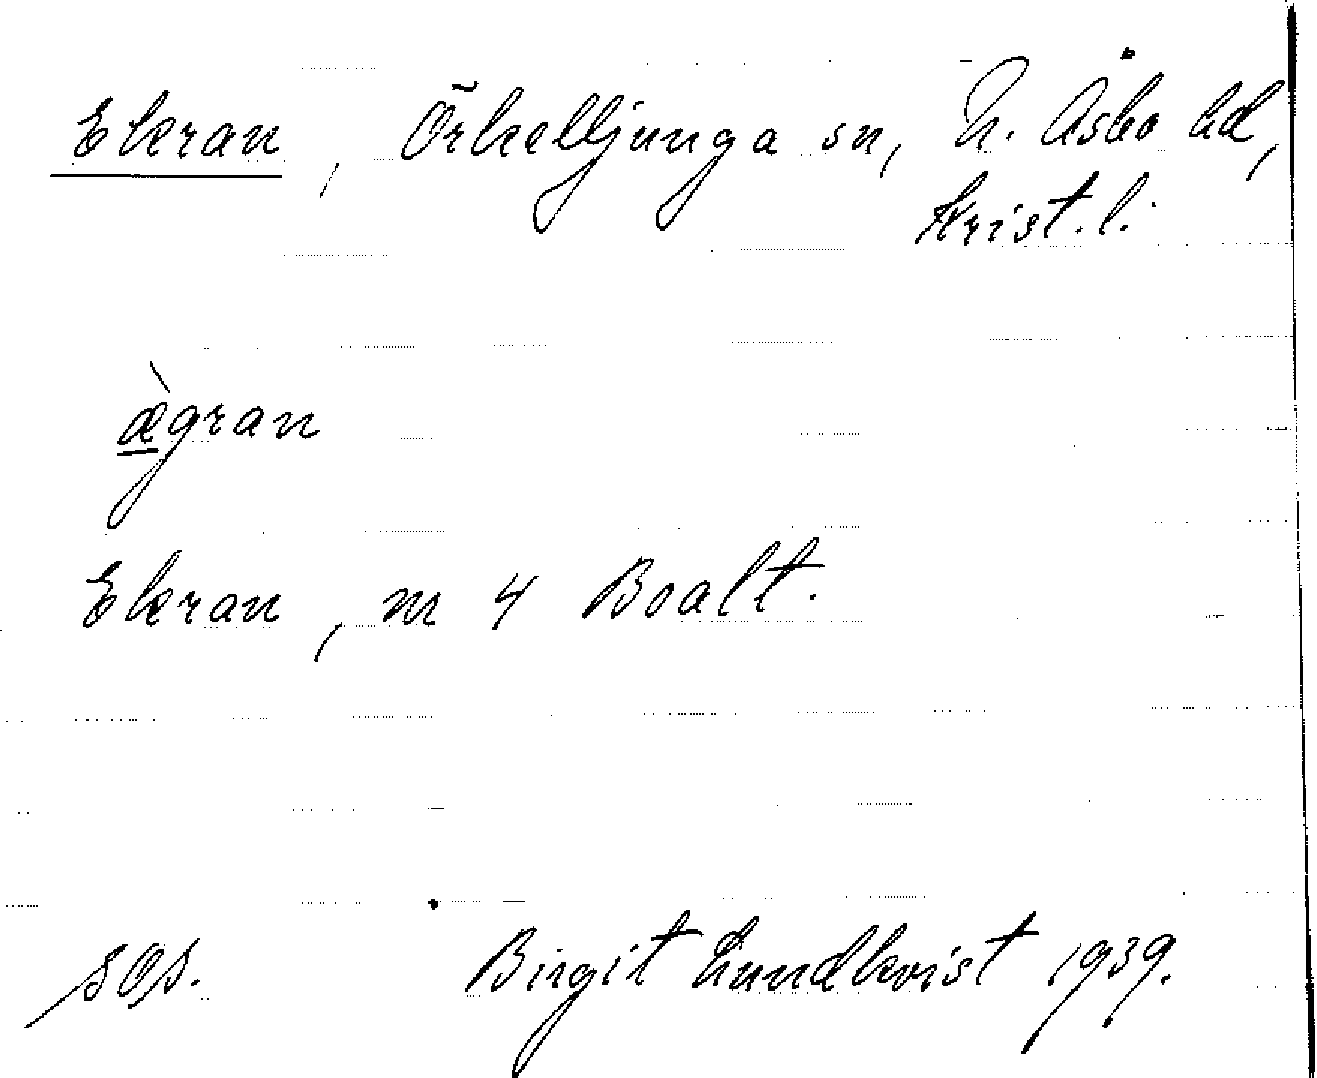 Ekran, Örkelljunga sn, N. Åsbo hd,
Krist. l.
æ̀gran
Ekran, m 4 Boalt.
sOs. Birgit Lundkvist 1939.